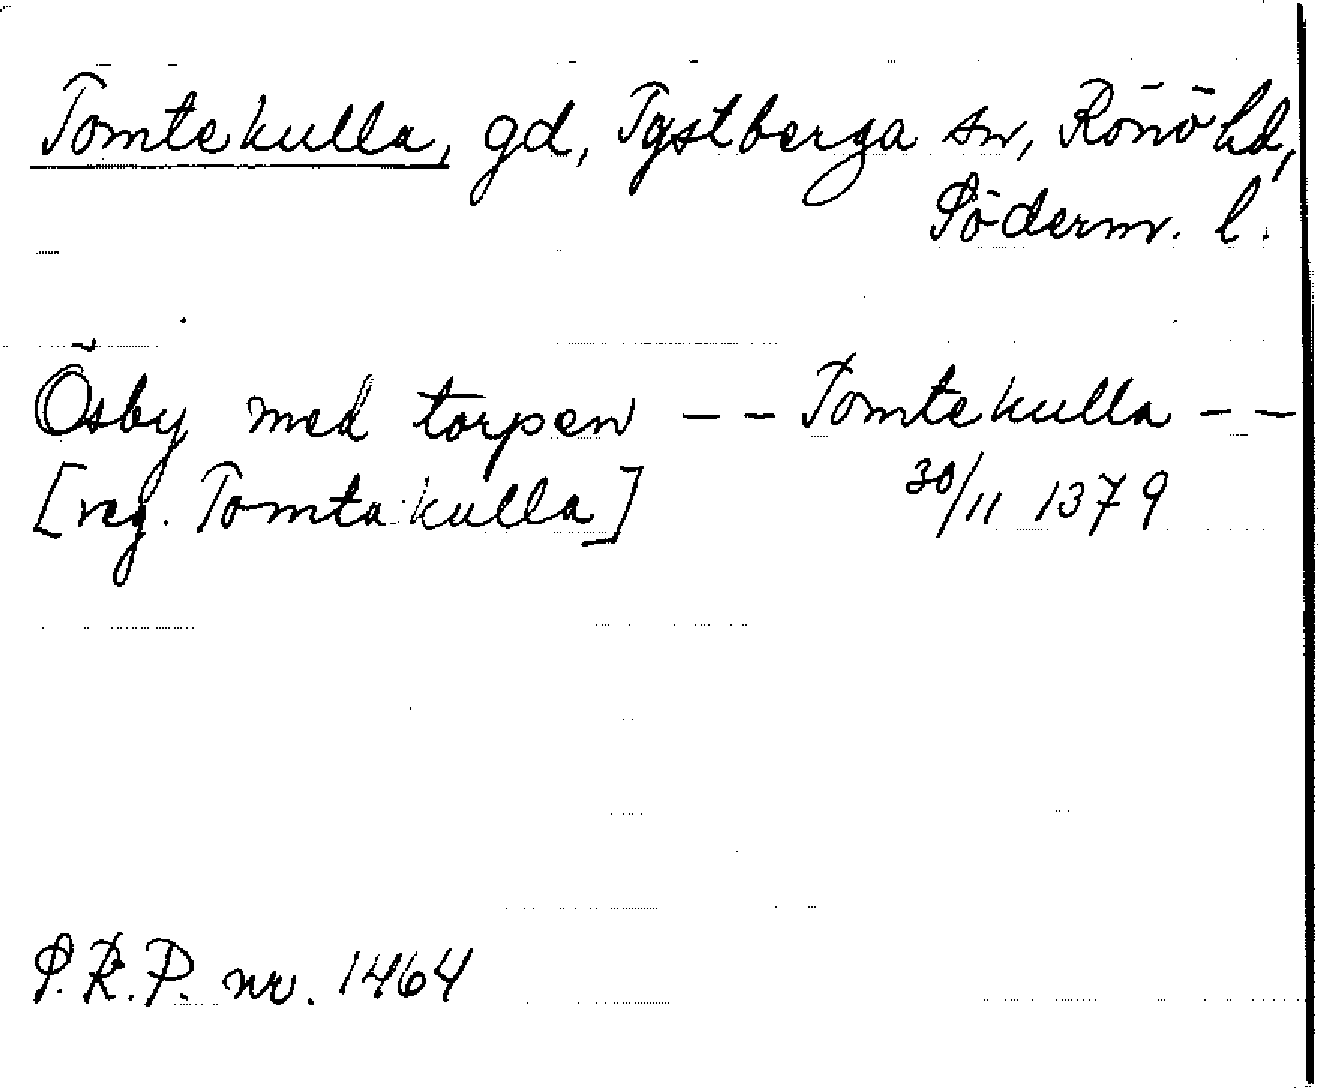 Tomtekulla, gd, Tystberga sn, Rönö hd,
Söderm. l.
Ösby med torpen -- Tomtekulla --
[reg. Tomtakulla] 30/11 1379
S.R.P. nr. 1464